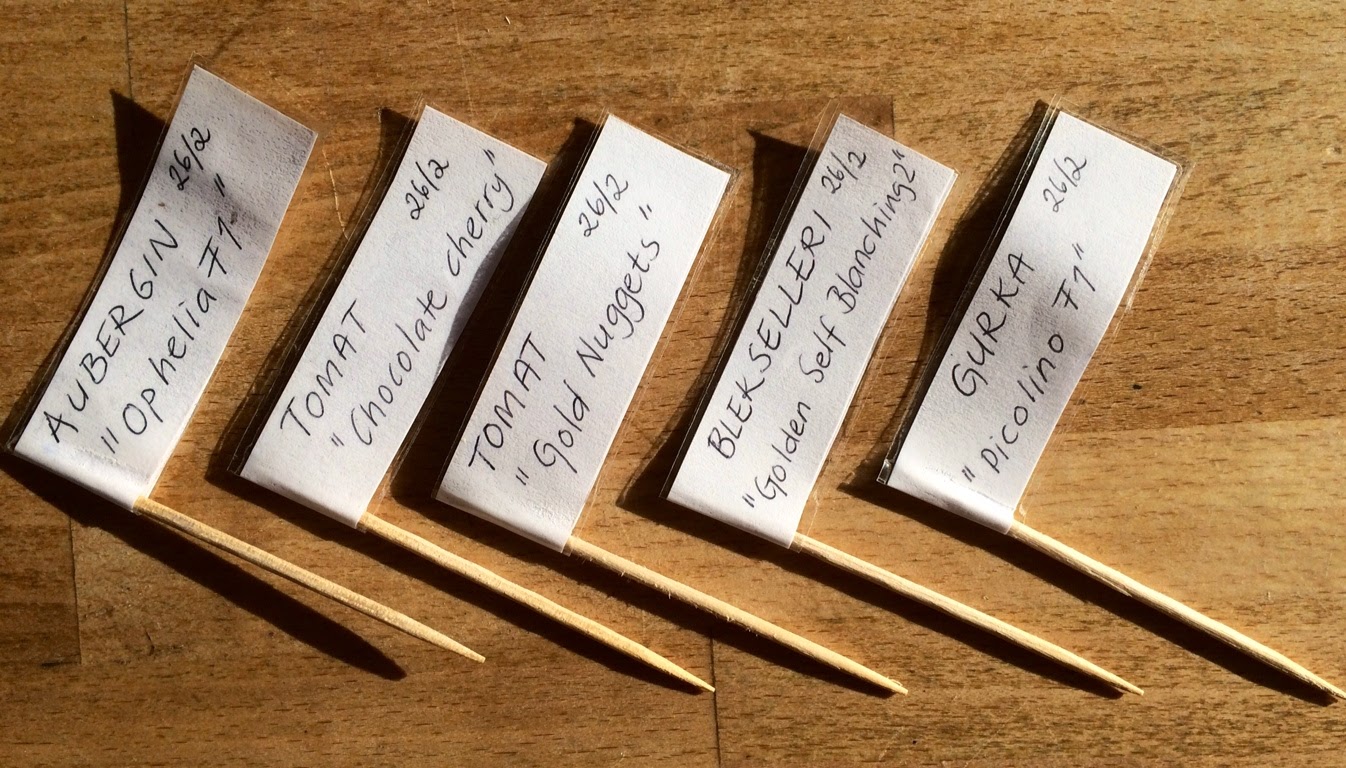 AUBERGIN 26/2
"Ophelia F1"
TOMAT 26/2
"Chocolate cherry"
TOMAT 26/2
"Gold Nuggets"
BLEKSELLERI 26/2
"Golden Self Blanching2"
GURKA 26/2
"Picolino F1"